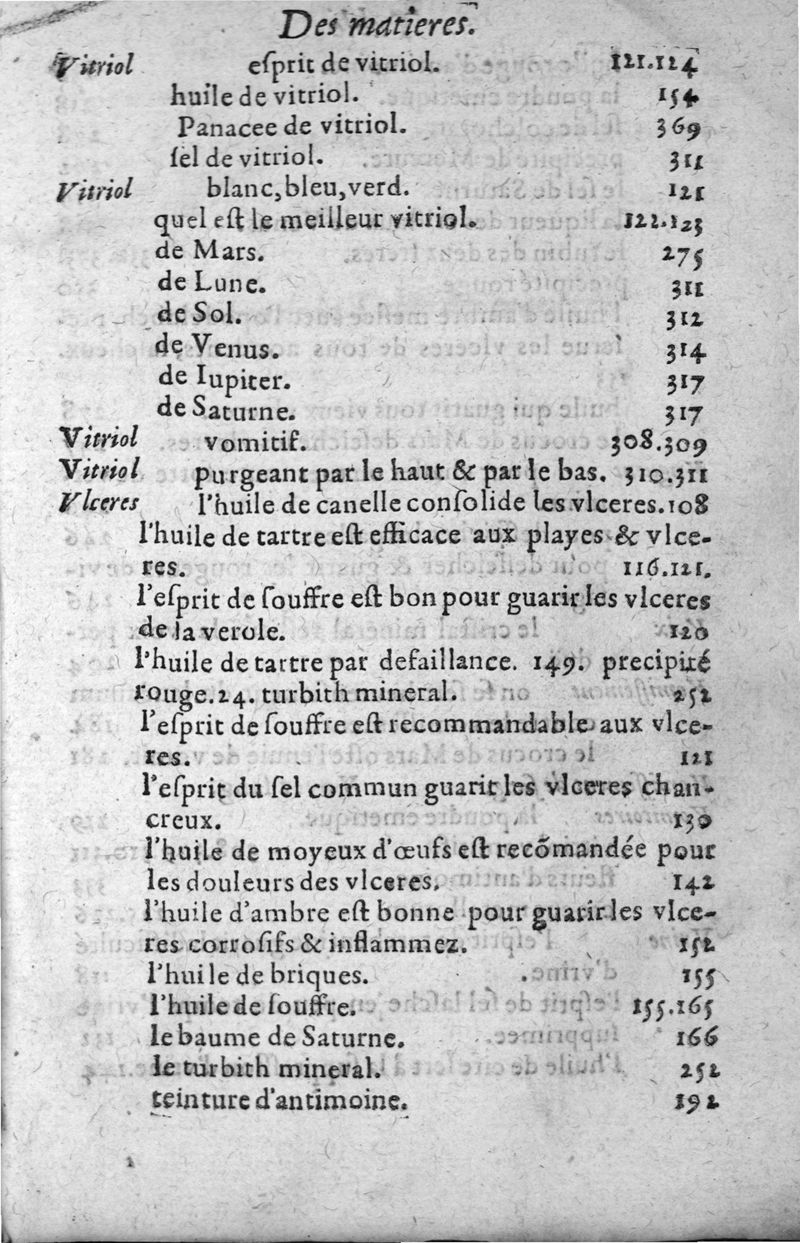 Des matieres.
Vitriol esprit de vitriol. 121.124
huile de vitriol. 154
Panacee de vitriol. 369
ſel de vitriol. 311
Vitriol blanc, bleu, verd. 121
quel eſt le meilleur vitriol. 122.123
de Mars. 275
de Lune. 311
de Sol. 312
de Venus. 314
de Iupiter. 317
de Saturne. 317
Vitriol vomitif. 308.309
Vitriol purgeant par le haut & par le bas. 310.311
Vlceres l'huile de canelle conſolide les vlceres. 108
l'huile de tartre eſt efficace aux playes & vlce-
res. 116.121.
l'eſprit de ſouffre eſt bon pour guarir les vlceres
de la verole. 120
l'huile de tartre par defaillance. 149. precipité
rouge. 24. turbith mineral. 252
l'eſprit de ſouffre eſt recommandable aux vlce-
res. 121
l'eſprit du ſel commun guarit les vlceres chan-
creux. 130
l'huile de moyeux d'œufs eſt recõmandée pour
les douleurs des vlceres. 142
l'huile d'ambre eſt bonne pour guarir les vlce-
res corroſifs & inflammez. 152
l'huile de briques. 155
l'huile de ſouffre. 155.165
le baume de Saturne. 166
le turbith mineral. 252
teinture d'antimoine. 192